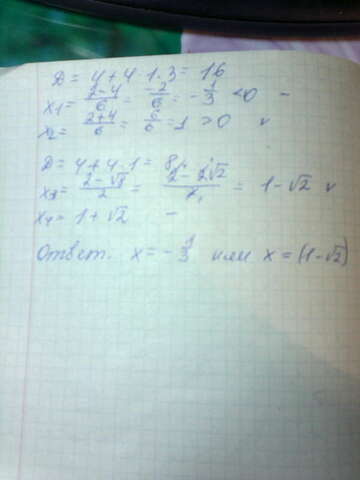 D = 4 + 4·1·3 = 16
x₁ = (2-4)/6 = (-2)/6 = -1/3 < 0 -
x₂ = (2+4)/6 = 6/6 = 1 > 0 v
D = 4 + 4·1 = 8
x₃ = (2-√8)/2 = (2-2√2)/2 = 1-√2 v
x₄ = 1+√2 -
Ответ. x = -1/3 или x = (1-√2)